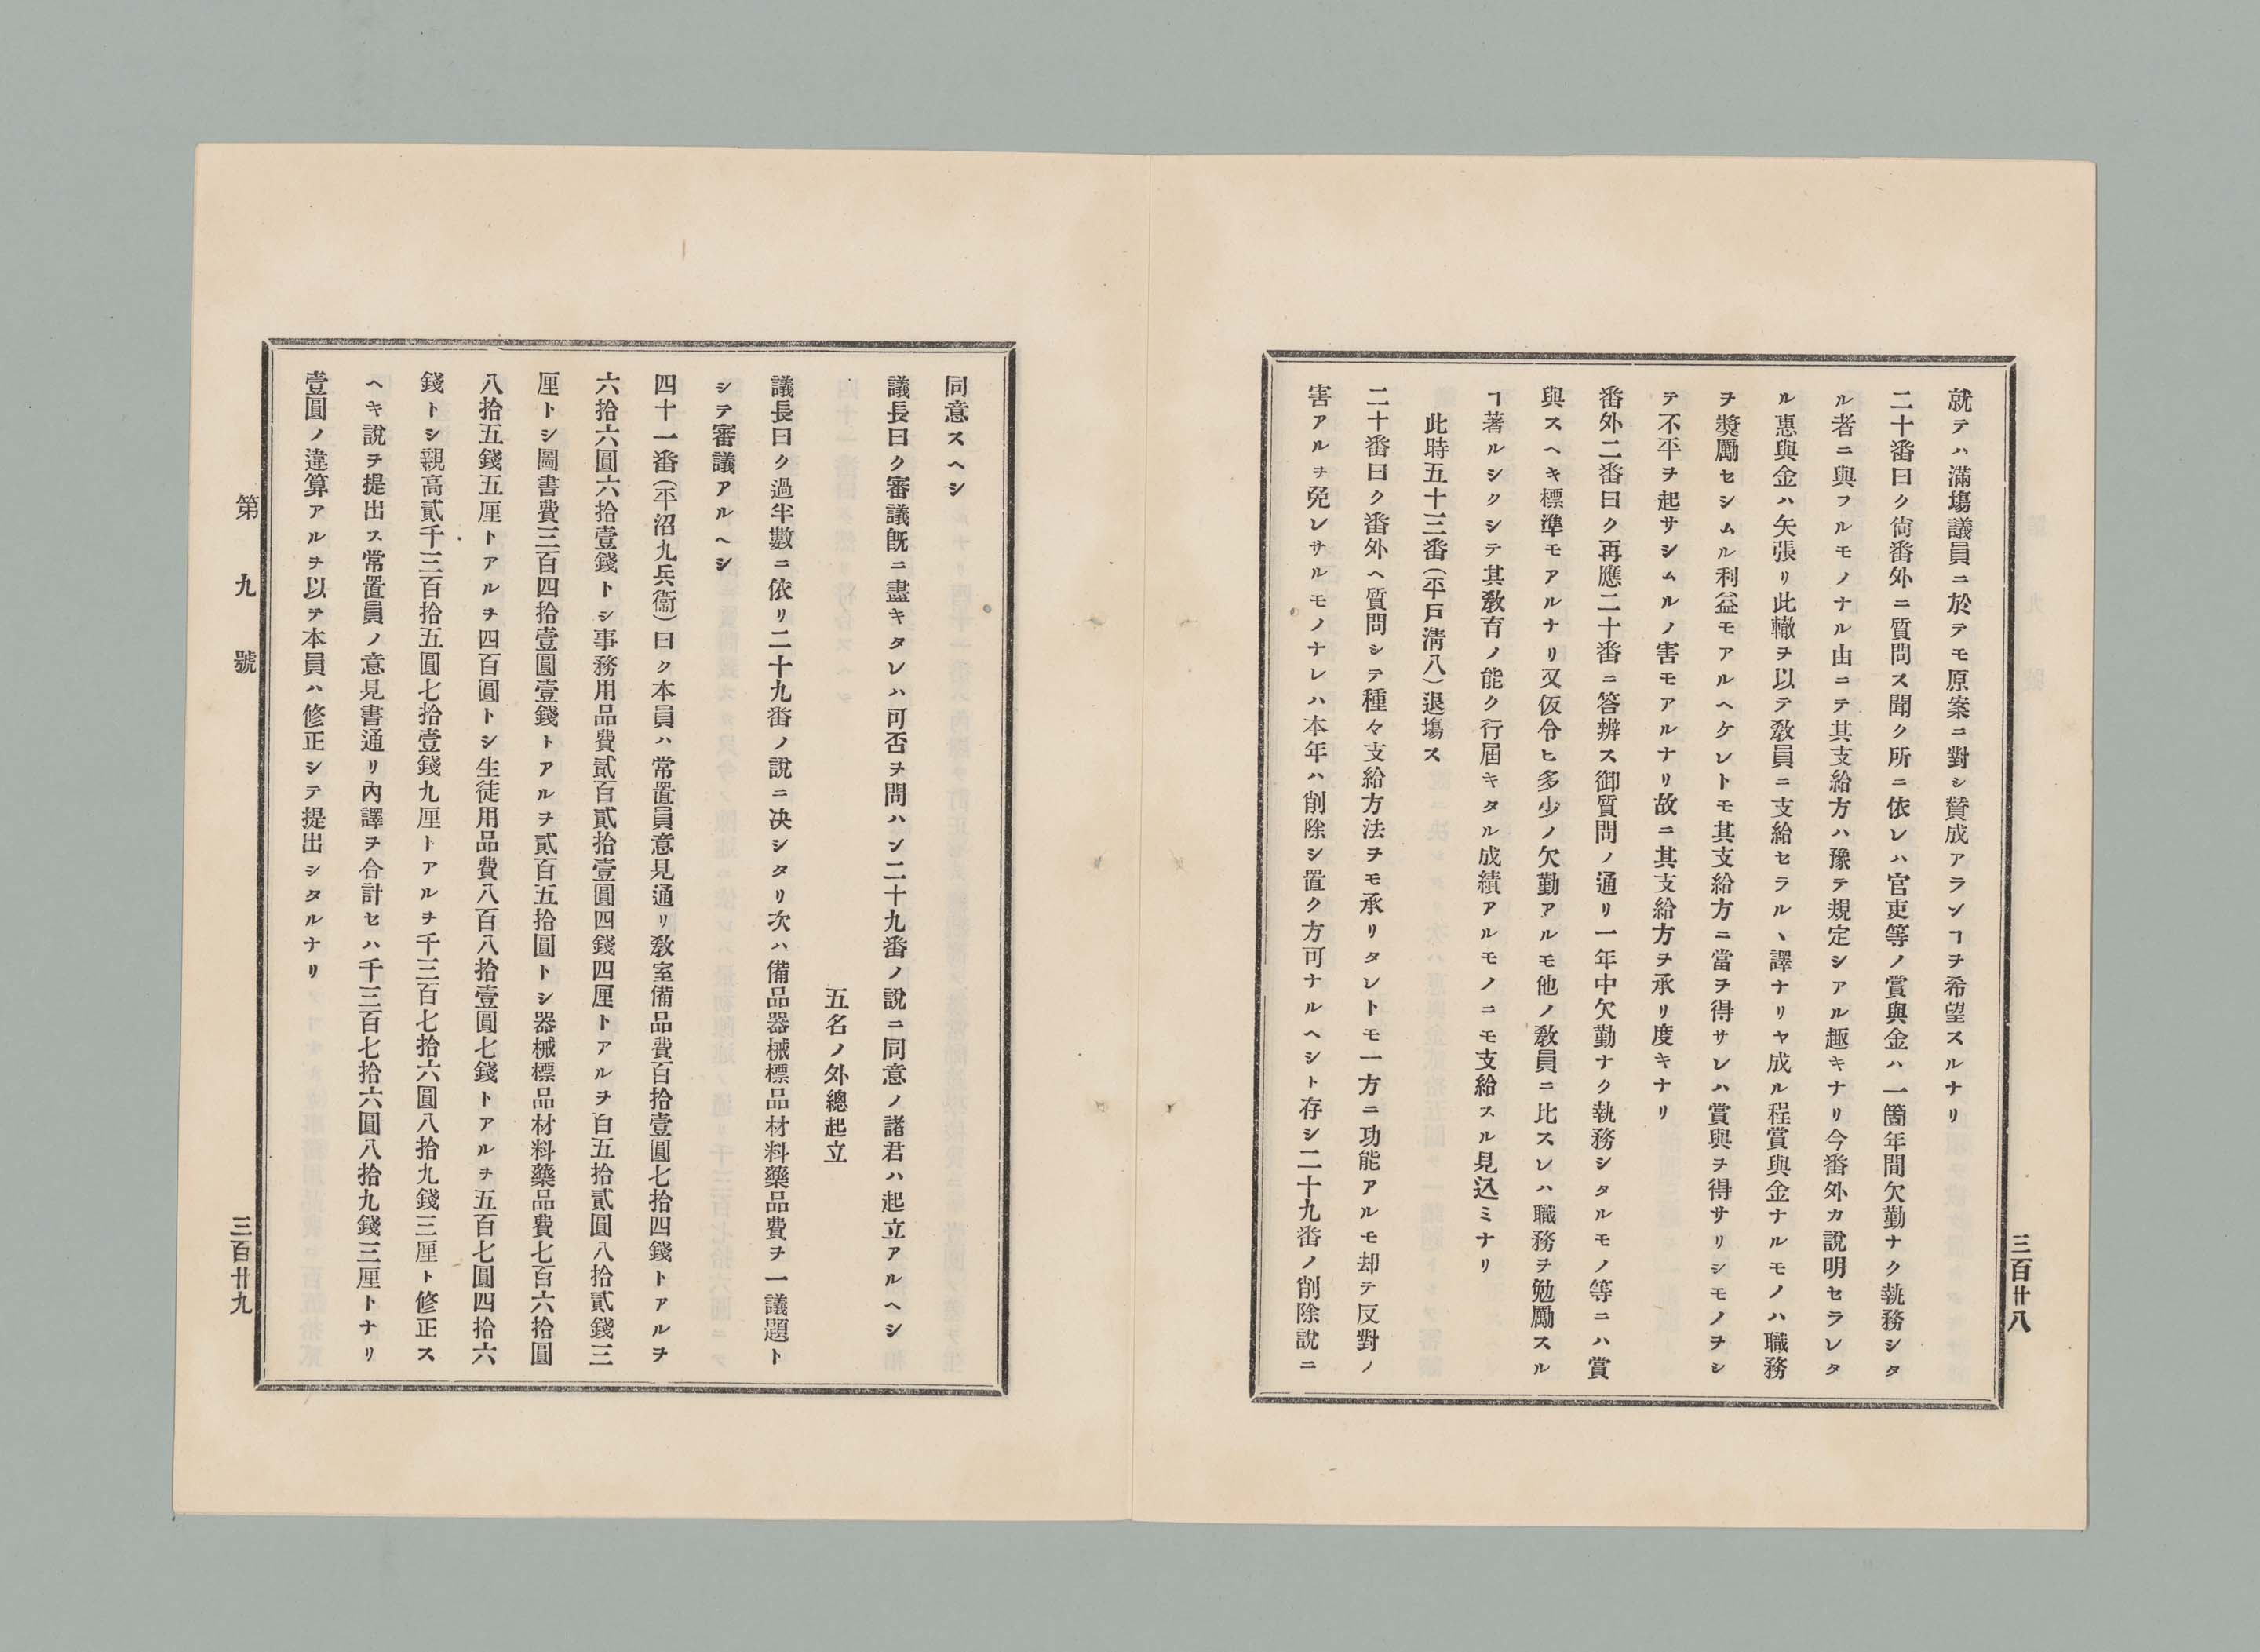 三百廿八
就テハ滿塲議員ニ於テモ原案ニ對シ賛成アランヿヲ希望スルナリ
二十番曰ク尙番外ニ質問ス聞ク所ニ依レハ官吏等ノ賞與金ハ一箇年間欠勤ナク執務シタ
ル者ニ與フルモノナル由ニテ其支給方ハ豫テ規定シアル趣キナリ今番外カ說明セラレタ
ル惠與金ハ矢張リ此轍ヲ以テ敎員ニ支給セラルヽ譯ナリヤ成ル程賞與金ナルモノハ職務
ヲ奬勵セシムル利益モアルヘケレトモ其支給方ニ當ヲ得サレハ賞與ヲ得サリシモノヲシ
テ不平ヲ起サシムルノ害モアルナリ故ニ其支給方ヲ承リ度キナリ
番外二番曰ク再應二十番ニ答辨ス御質問ノ通リ一年中欠勤ナク執務シタルモノ等ニハ賞
與スヘキ標準モアルナリ又仮令ヒ多少ノ欠勤アルモ他ノ敎員ニ比スレハ職務ヲ勉勵スル
ヿ著ルシクシテ其敎育ノ能ク行屆キタル成績アルモノニモ支給スル見込ミナリ
此時五十三番（平戸淸八）退塲ス
二十番曰ク番外ヘ質問シテ種々支給方法ヲモ承リタレトモ一方ニ功能アルモ却テ反對ノ
害アルヲ免レサルモノナレハ本年ハ削除シ置ク方可ナルヘシト存シ二十九番ノ削除說ニ
同意スヘシ
議長曰ク審議旣ニ盡キタレハ可否ヲ問ハン二十九番ノ說ニ同意ノ諸君ハ起立アルヘシ
五名ノ外總起立
議長曰ク過半數ニ依リ二十九番ノ說ニ决シタリ次ハ備品器械標品材料藥品費ヲ一議題ト
シテ審議アルヘシ
四十一番（平沼九兵衞）曰ク本員ハ常置員意見通リ敎室備品費百拾壹圓七拾四錢トアルヲ
六拾六圓六拾壹錢トシ事務用品費貳百貳拾壹圓四錢四厘トアルヲ百五拾貳圓八拾貳錢三
厘トシ圖書費三百四拾壹圓壹錢トアルヲ貳百五拾圓トシ器械標品材料藥品費七百六拾圓
八拾五錢五厘トアルヲ四百圓トシ生徒用品費八百八拾壹圓七錢トアルヲ五百七圓四拾六
錢トシ親高貳千三百拾五圓七拾壹錢九厘トアルヲ千三百七拾六圓八拾九錢三厘ト修正ス
ヘキ說ヲ提出ス常置員ノ意見書通リ內譯ヲ合計セハ千三百七拾六圓八拾九錢三厘トナリ
壹圓ノ違算アルヲ以テ本員ハ修正シテ提出シタルナリ
第九號
三百廿九